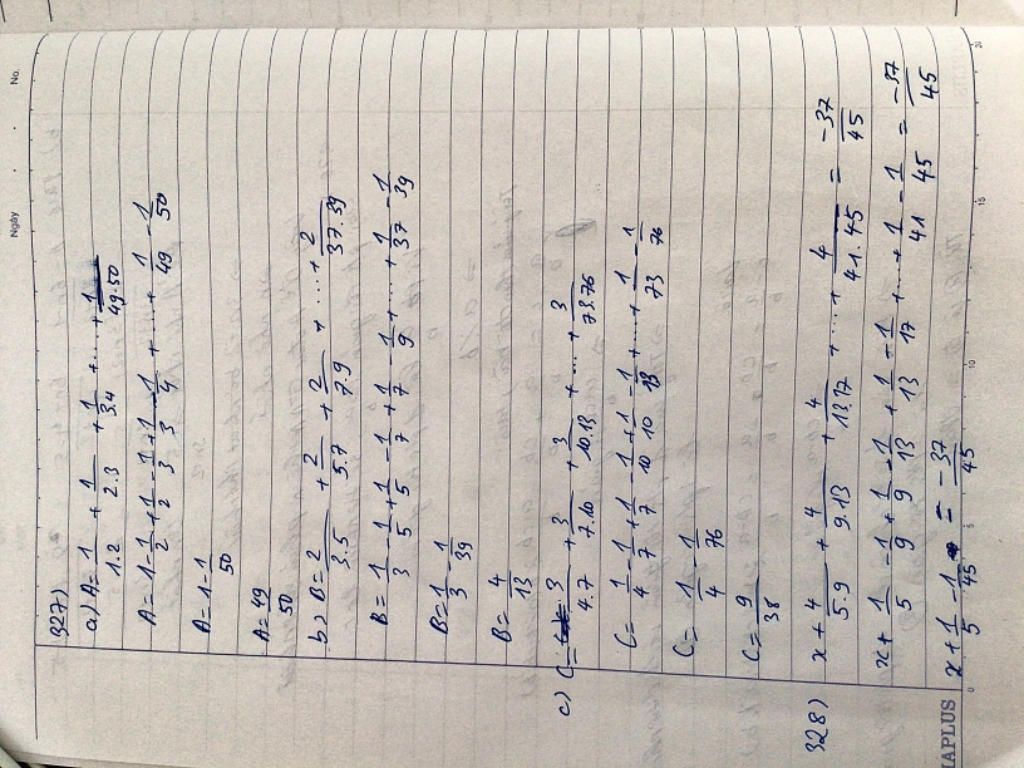 Ngày . . No.
327)
a) A = 1/1.2 + 1/2.3 + 1/3.4 + .... + 1/49.50
A = 1 - 1/2 + 1/2 - 1/3 + 1/3 - 1/4 + .... + 1/49 - 1/50
A = 1 - 1/50
A = 49/50
b) B = 2/3.5 + 2/5.7 + 2/7.9 + .... + 2/37.39
B = 1/3 - 1/5 + 1/5 - 1/7 + 1/7 - 1/9 + .... + 1/37 - 1/39
B = 1/3 - 1/39
B = 4/13
c) C = 3/4.7 + 3/7.10 + 3/10.13 + ... + 3/73.76
C = 1/4 - 1/7 + 1/7 - 1/10 + 1/10 - 1/13 + .... + 1/73 - 1/76
C = 1/4 - 1/76
C = 9/38
328) x + 4/5.9 + 4/9.13 + 4/13.17 + .... + 4/41.45 = -37/45
x + 1/5 - 1/9 + 1/9 - 1/13 + 1/13 - 1/17 + .... + 1/41 - 1/45 = -37/45
x + 1/5 - 1/45 = -37/45
0 5 10 15 20